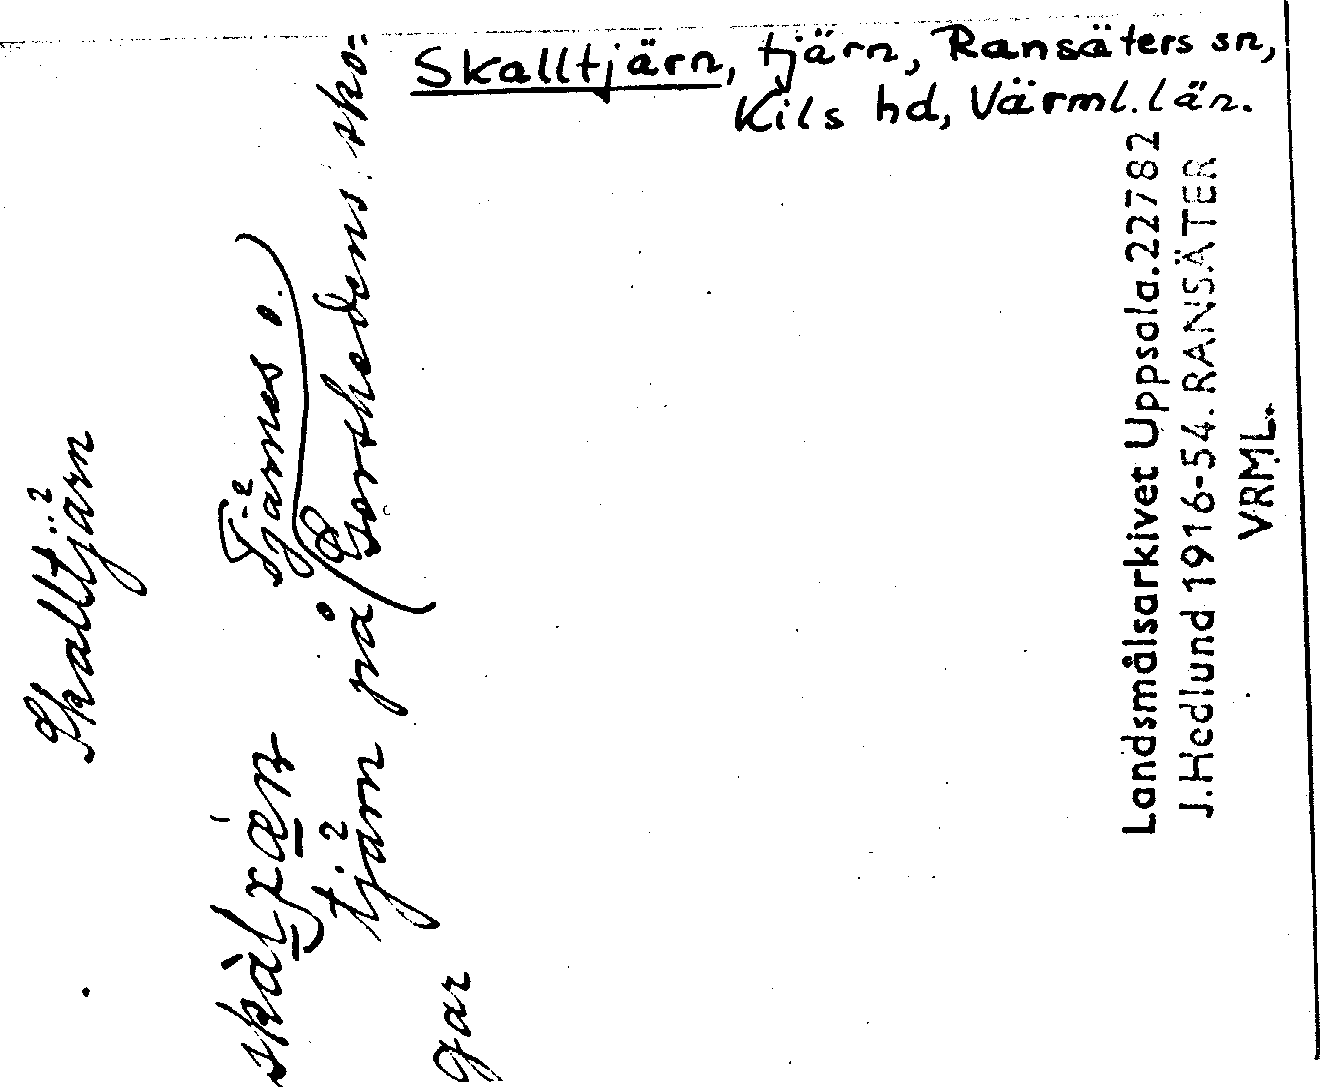 Skalltjärn, tjärn, Ransäters sn,
Kils hd, Värml. län.
Skalltjärn
Tjärnes o.)
tjärn på Gorshedens sko-
gar
Landsmålsarkivet Uppsala.22782
J.Hedlund 1916-54. RANSÄTER
VRML.